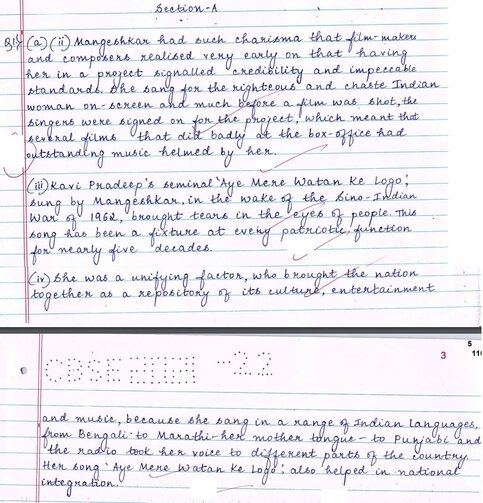 Section-A
Q1) (a) (ii) Mangeshkar had such charisma that film-makers
and composers realised very early on that having
her in a project signalled credibility and impeccable
standards. She sang for the righteous and chaste Indian
woman on-screen and much before a film was shot, the
singers were signed on for the project, which meant that
several films that did badly at the box-office had
outstanding music helmed by her.
(iii) Kavi Pradeep's seminal 'Aye Mere Watan Ke Logo',
sung by Mangeshkar, in the wake of the Sino-Indian
War of 1962, brought tears in the eyes of people. This
song has been a fixture at every patriotic function
for nearly five decades.
(iv) She was a unifying factor, who brought the nation
together as a repository of its culture, entertainment
CBSE -22
3
5
and music, because she sang in a range of Indian Languages,
from Bengali to Marathi-her mother tongue-to Punjabi and
the radio took her voice to different parts of the country.
Her song 'Aye Mere Watan Ke Logo', also helped in national
integration.